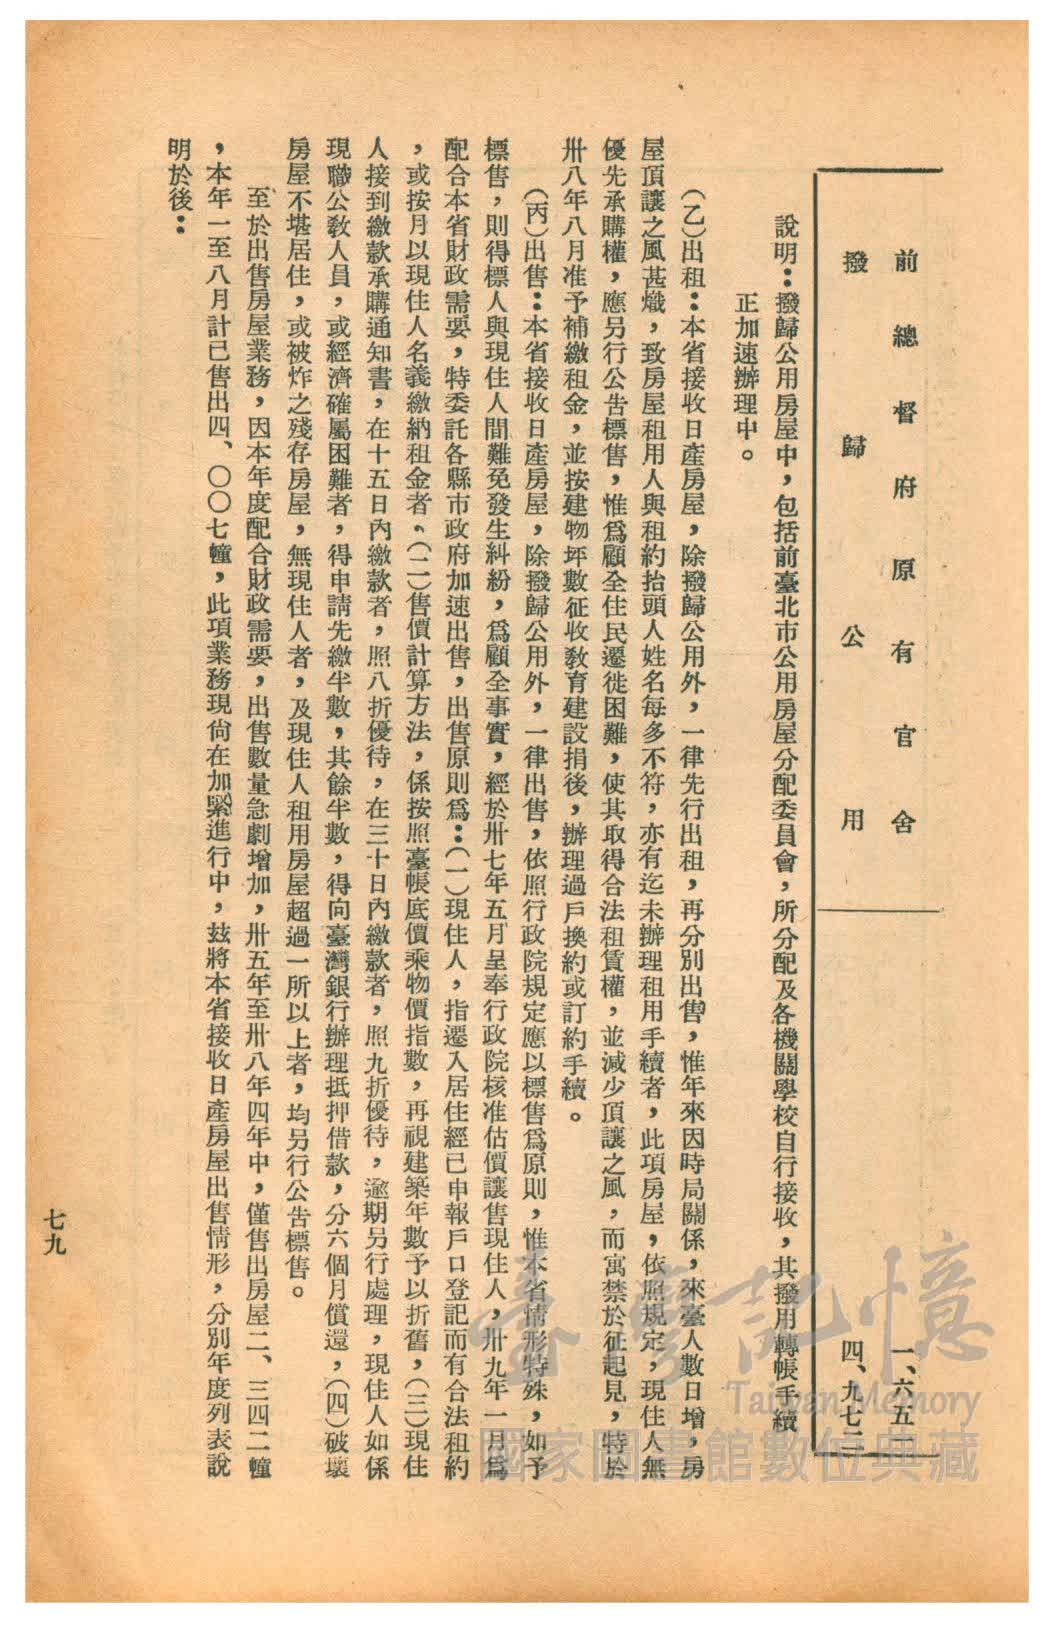 前總督府原有官舍　一、六五一
撥歸公用　四、九七二
說明：撥歸公用房屋中，包括前臺北市公用房屋分配委員會，所分配及各機關學校自行接收，其撥用轉帳手續
正加速辦理中。
（乙）出租：本省接收日產房屋，除撥歸公用外，一律先行出租，再分別出售，惟年來因時局關係，來臺人數日增，房
屋頂讓之風甚熾，致房屋租用人與租約抬頭人姓名每多不符，亦有迄未辦理租用手續者，此項房屋，依照規定，現住人無
優先承購權，應另行公告標售，惟爲顧全住民遷徙困難，使其取得合法租賃權，並減少頂讓之風，而寓禁於征起見，特於
卅八年八月准予補繳租金，並按建物坪數征收教育建設捐後，辦理過戶換約或訂約手續。
（丙）出售：本省接收日產房屋，除撥歸公用外，一律出售，依照行政院規定應以標售爲原則，惟本省情形特殊，如予
標售，則得標人與現住人間難免發生糾紛，爲顧全事實，經於卅七年五月呈奉行政院核准估價讓售現住人，卅九年一月爲
配合本省財政需要，特委託各縣市政府加速出售，出售原則爲：（一）現住人，指遷入居住經已申報戶口登記而有合法租約
，或按月以現住人名義繳納租金者、（二）售價計算方法，係按照臺帳底價乘物價指數，再視建築年數予以折舊，（三）現住
人接到繳款承購通知書，在十五日內繳款者，照八折優待，在三十日內繳款者，照九折優待，逾期另行處理，現住人如係
現職公教人員，或經濟確屬困難者，得申請先繳半數，其餘半數，得向臺灣銀行辦理抵押借款，分六個月償還，（四）破壞
房屋不堪居住，或被炸之殘存房屋，無現住人者，及現住人租用房屋超過一所以上者，均另行公告標售。
至於出售房屋業務，因本年度配合財政需要，出售數量急劇增加，卅五年至卅八年四年中，僅售出房屋二、三四二幢
，本年一至八月計已售出四、〇〇七幢，此項業務現尙在加緊進行中，玆將本省接收日產房屋出售情形，分別年度列表說
明於後：
七九
臺灣記憶
Taiwan Memory
國家圖書館數位典藏